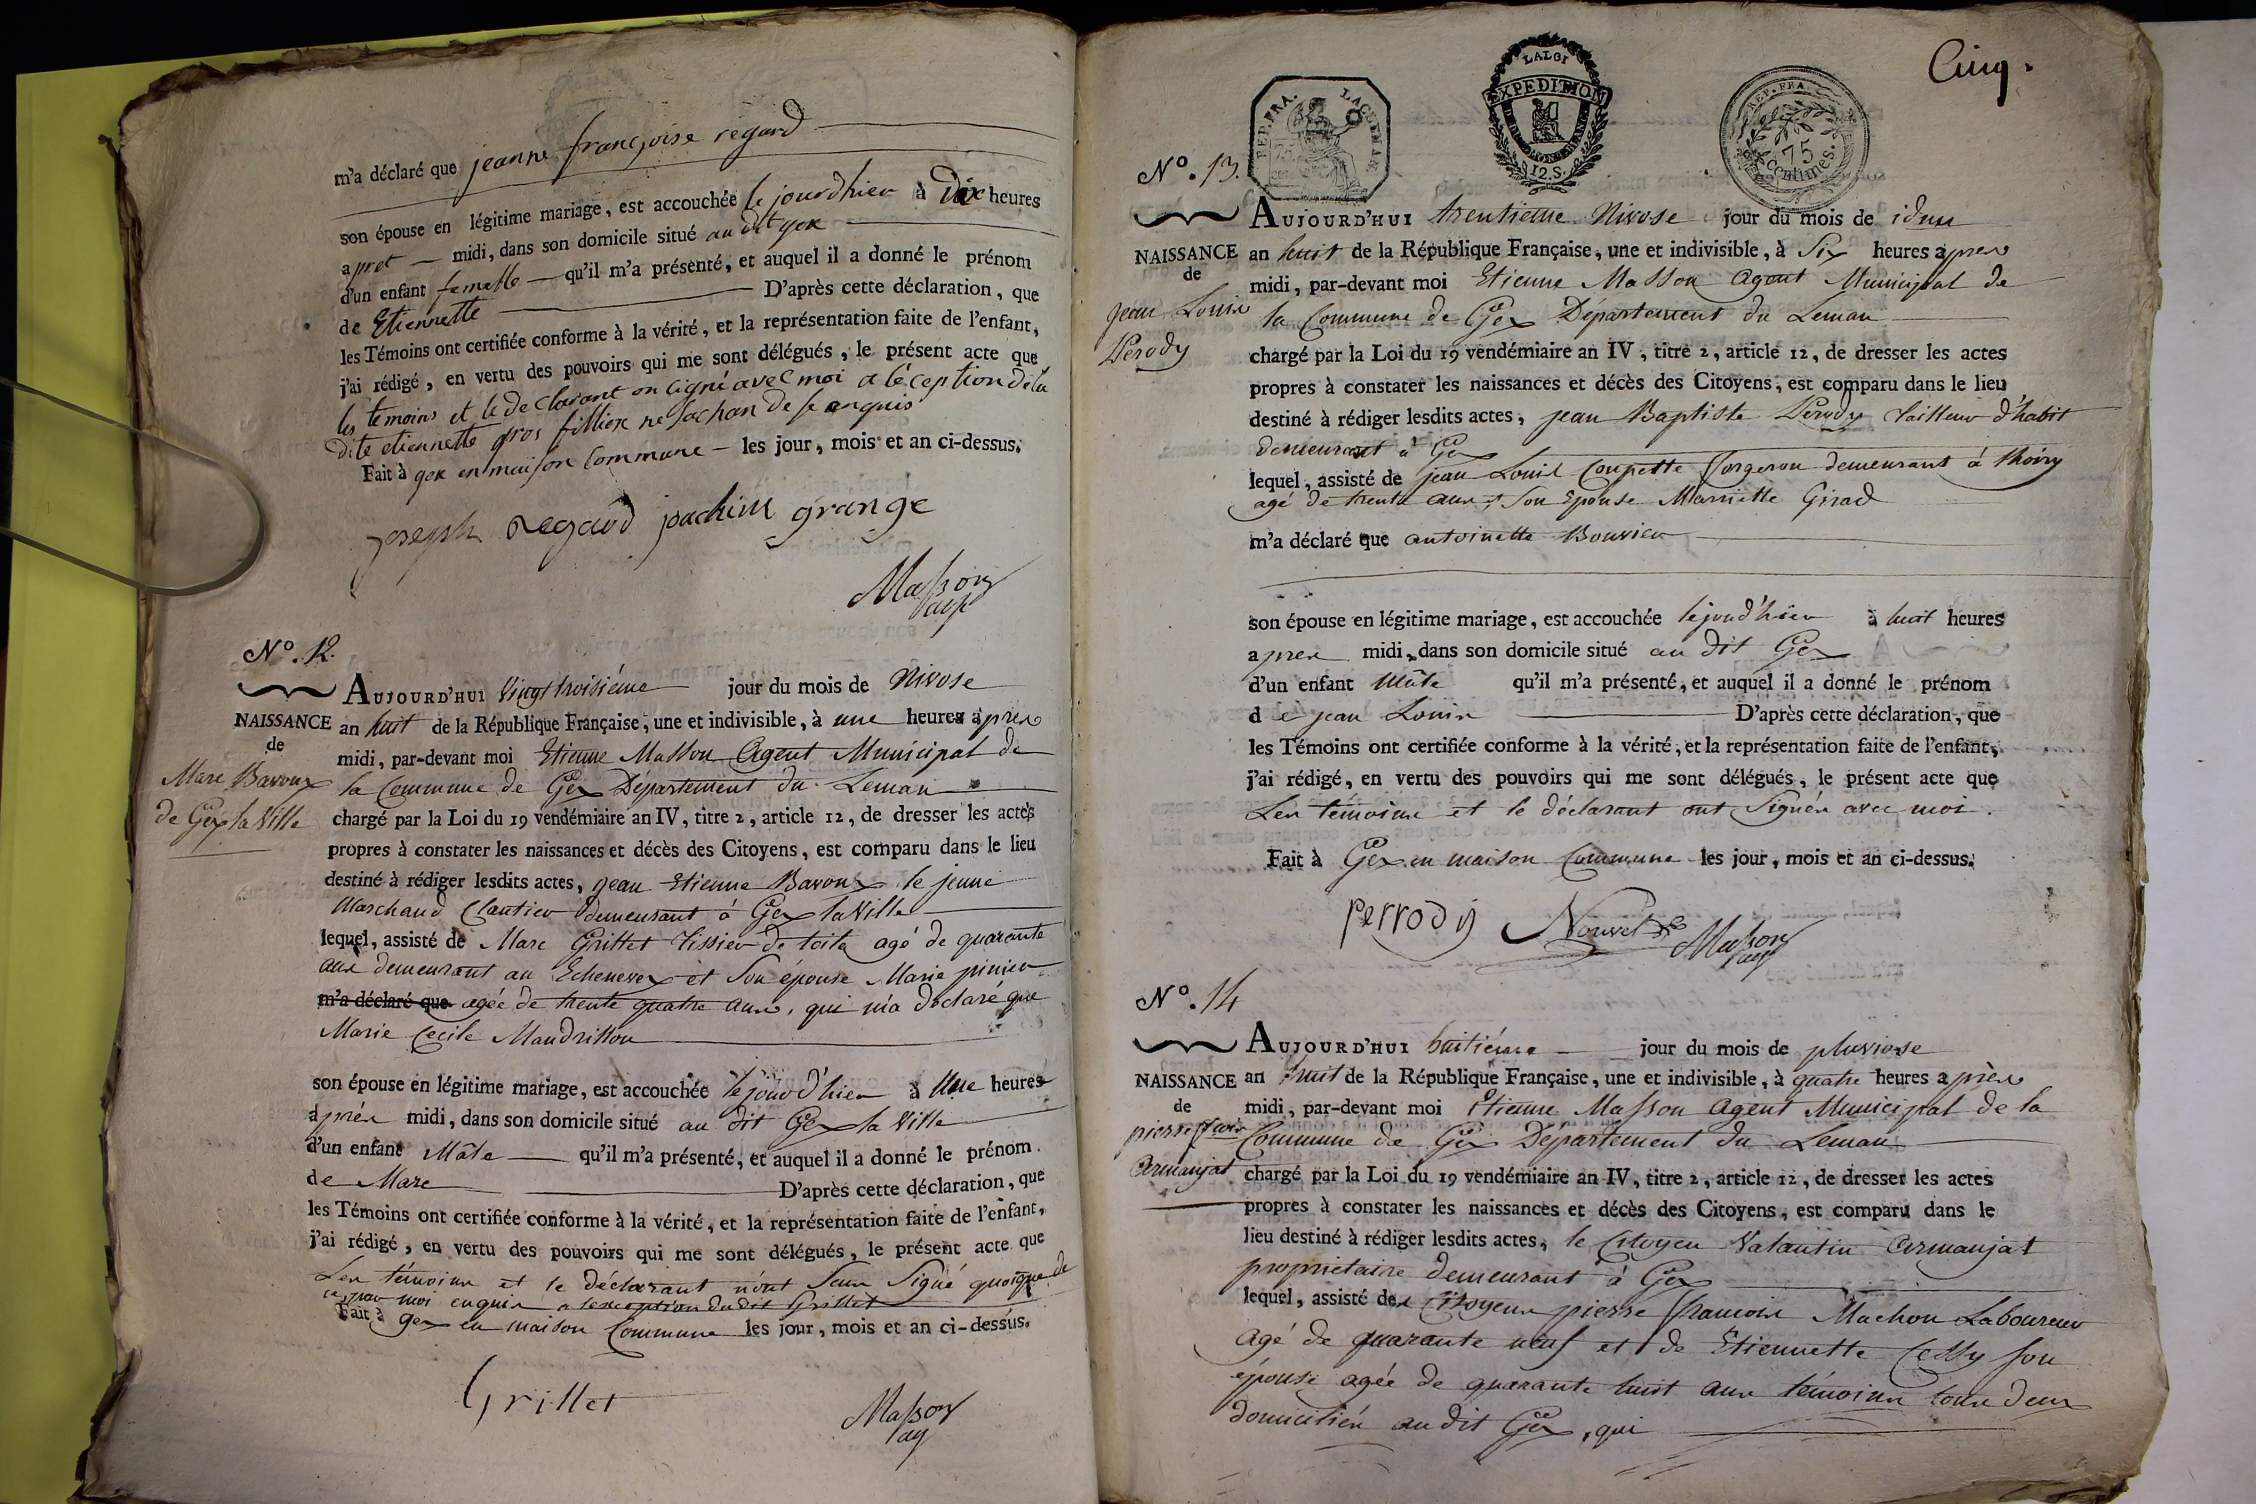 m'a déclaré que jeanne françoise regard
son épouse en légitime mariage, est accouchée le jourdhier à Dix heures
apret midi, dans son domicile situé au dit gex
d'un enfant femelle qu'il m'a présenté, et auquel il a donné le prénom
de Etiennette D'après cette déclaration, que
les Témoins ont certifiée conforme à la vérité, et la représentation faite de l'enfant,
j'ai rédigé, en vertu des pouvoirs qui me sont délégués, le présent acte que
les temoins et le declarant on signé avec moi a l'éception de la
dite etiennette gros fillion ne sachan de se enquis
Fait à gex en maison commune les jour, mois et an ci-dessus.
joseph Regard joachim grange
Masson
agt
N.º 12.
AUJOURD'HUI vingt troisiéme jour du mois de Nivose
NAISSANCE
de
Marc Baroux
de Gex la Ville
an huit de la République Française, une et indivisible, à une heures après
midi, par-devant moi Etienne Masson Agent Municipal de
la Commune de Gex Département du Leman
chargé par la Loi du 19 vendémiaire an IV, titre 2, article 12, de dresser les actes
propres à constater les naissances et décès des Citoyens, est comparu dans le lieu
destiné à rédiger lesdits actes, jean Etienne Baroux le jeune
Marchand Clautier demeurant à Gex la Ville
lequel, assisté de Marc Grillet tissier de toile agé de quarante
ans demeurant au Echenevex et son épouse Marie pinier
m'a déclaré que agée de trente quatre ans, qui m'a déclaré que
Marie Cecile Maudrillon
son épouse en légitime mariage, est accouchée lejourd'hier à Une heures
après midi, dans son domicile situé au dit Gex la Ville
d'un enfant Mâle qu'il m'a présenté, et auquel il a donné le prénom
de Marc D'après cette déclaration, que
les Témoins ont certifiée conforme à la vérité, et la représentation faite de l'enfant,
j'ai rédigé, en vertu des pouvoirs qui me sont délégués, le présent acte que
Les témoins et le déclarant n'ont Signé quoique de
ce par moi enquis a lexception du dit Grillet
Fait à gex en maison Commune les jour, mois et an ci-dessus.
Grillet
Masson
ag
Cinq.
REP. FRA. LACSEMAN
LALOI
EXPEDITION
12.S.
REP. FRA.
75
Centimes.
N.º 13.
AUJOURD'HUI trentieme Nivose jour du mois de idem
NAISSANCE
de
jean Louis
Perody
an huit de la République Française, une et indivisible, à Six heures après
midi, par-devant moi Etienne Masson Agent Municipal de
la Commune de Gex Département du Leman
chargé par la Loi du 19 vendémiaire an IV, titre 2, article 12, de dresser les actes
propres à constater les naissances et décès des Citoyens, est comparu dans le lieu
destiné à rédiger lesdits actes, jean Baptiste Perody tailleur d'habit
demeurant à Gex
lequel, assisté de jean Louis Coupette forgeron demeurant à thoiry
agé de trente ans, son Epouse Marriette Girad
m'a déclaré que antoinette Bouvier
son épouse en légitime mariage, est accouchée lejourd'hier à huit heures
apres midi, dans son domicile situé au dit Gex
d'un enfant Mâle qu'il m'a présenté, et auquel il a donné le prénom
de jean Louis D'après cette déclaration, que
les Témoins ont certifiée conforme à la vérité, et la représentation faite de l'enfant,
j'ai rédigé, en vertu des pouvoirs qui me sont délégués, le présent acte que
Les témoins et le déclarant ont signés avec moi.
Fait à Gex en maison Commune les jour, mois et an ci-dessus.
Perrody Nouvel Masson
ag
N.º 14
AUJOURD'HUI huitiéme jour du mois de pluviose
NAISSANCE
de
pierre
Armanjat
an huit de la République Française, une et indivisible, à quatre heures après
midi, par-devant moi Etienne Masson Agent Municipal de la
Commune de Gex Département du Leman
chargé par la Loi du 19 vendémiaire an IV, titre 2, article 12, de dresser les actes
propres à constater les naissances et décès des Citoyens, est comparu dans le
lieu destiné à rédiger lesdits actes, le Citoyen Valantin Armanjat
propriétaire demeurant à Gex
lequel, assisté des Citoyens pierre francois Machon Laboureur
agé de quarante neuf et de Etiennette Cessy son
épouse agée de quarante huit ans témoins tous deux
domiciliés au dit Gex, qui